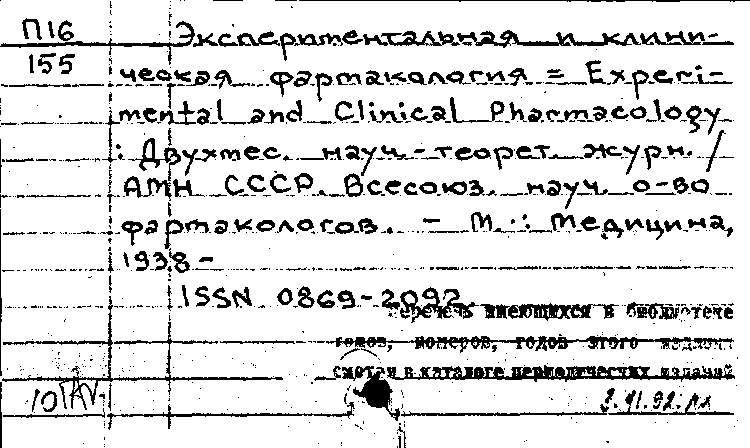 П16
155
Экспериментальная и клини-
ческая фармакология = Experi-
mental and Clinical Pharmacology
: Двухмес. науч.-теорет. журн. /
АМН СССР. Всесоюз. науч. о-во
фармакологов. - М.: Медицина,
1938-
ISSN 0869-2092
Перечень имеющихся в библиотеке
томов, номеров, годов этого издания
смотри в каталоге периодических изданий